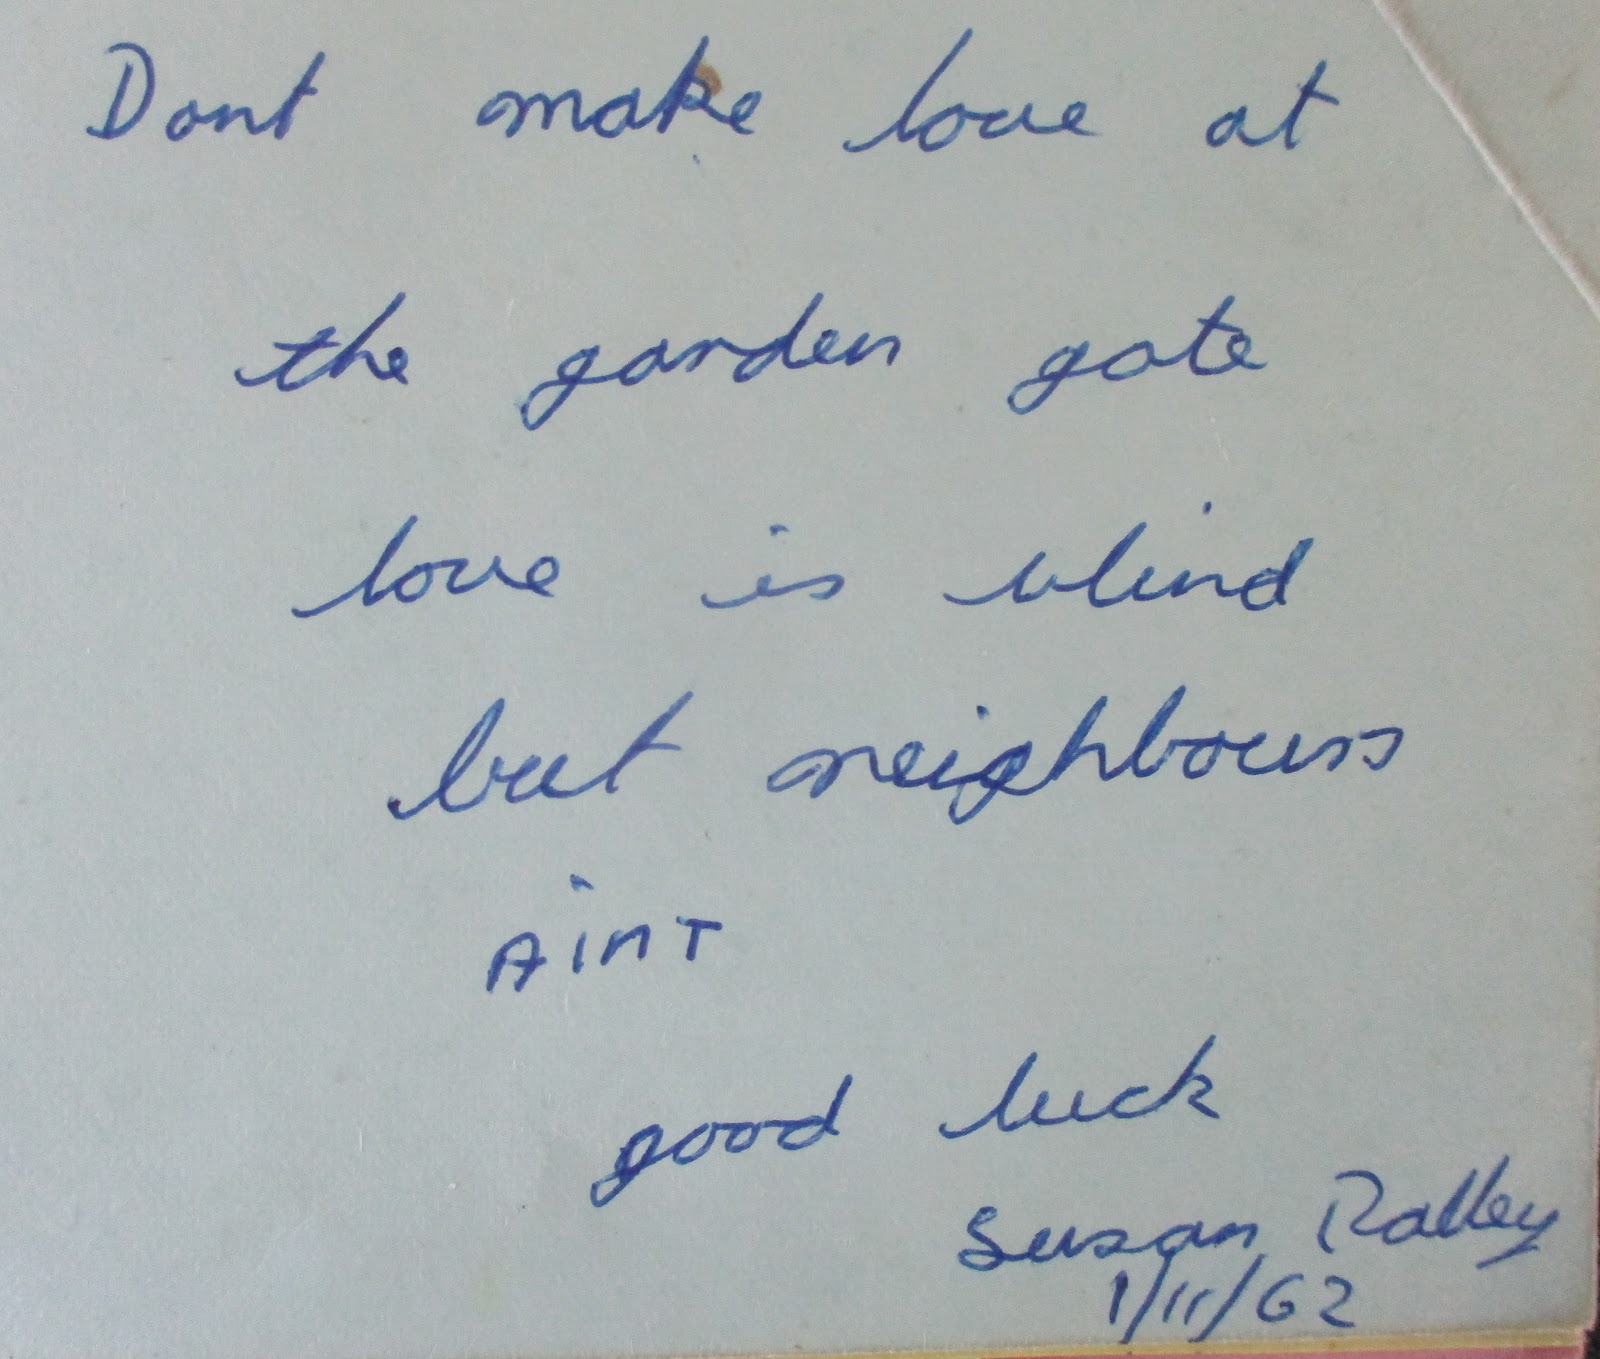 Dont make love at
the garden gate
love is blind
but neighbours
AinT
good luck
Susan Ralley
1/11/62